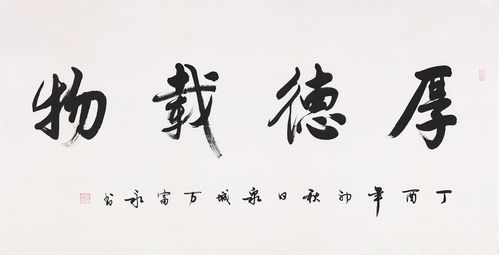 厚德載物
丁酉年初秋日泉城万富永书